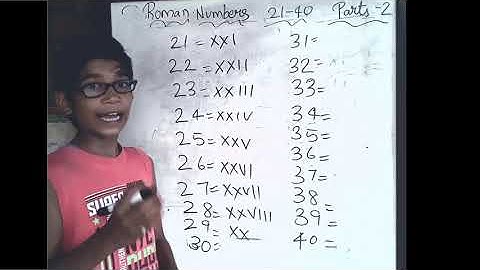 Roman Numbers 21-40 Parts-2
21 = XXI 31=
22 = XXII 32=
23 = XXIII 33=
24 = XXIV 34=
25 = XXV 35=
26 = XXVI 36=
27 = XXVII 37=
28 = XXVIII 38
29 = XX 39=
30= 40=
SUPER